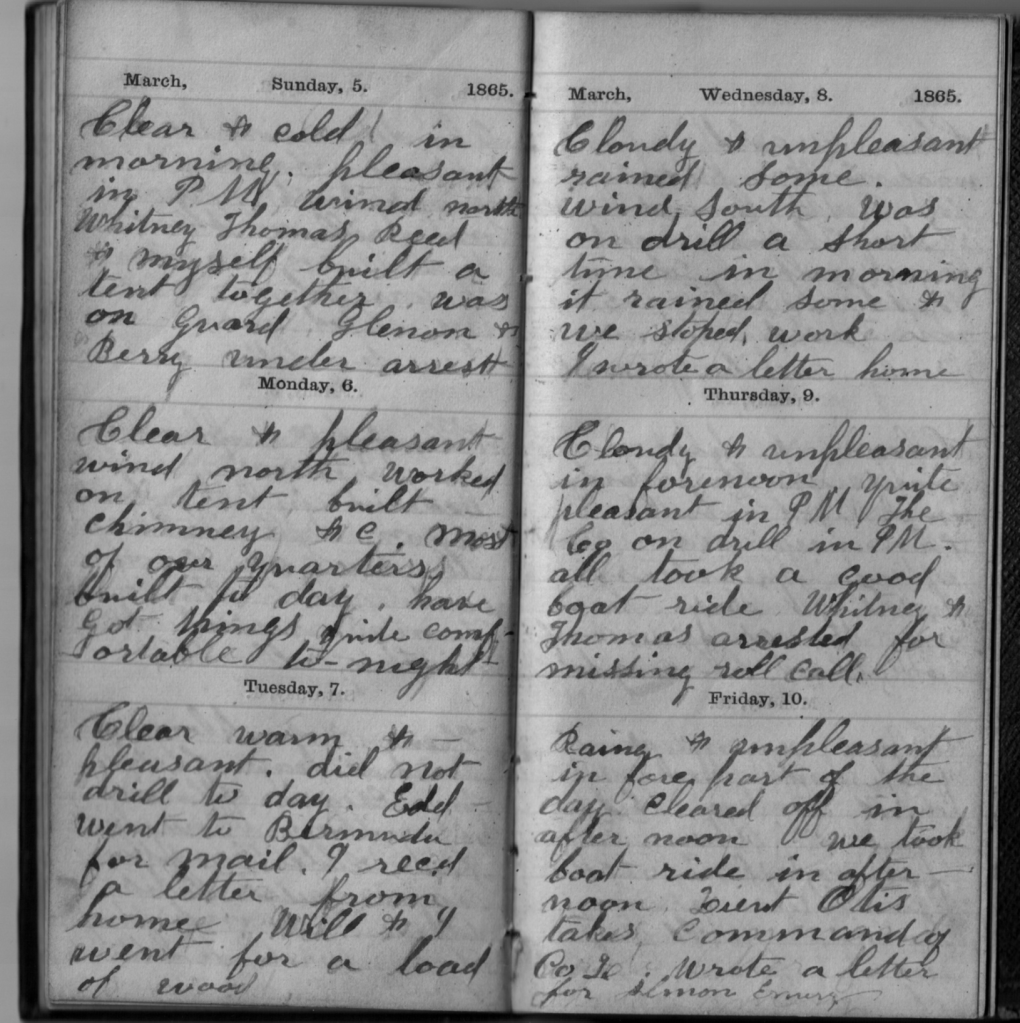 March, Sunday, 5. 1865.
Clear & cold in
morning. pleasant
in P M, wind north
Whitney Thomas Reed
& myself built a
tent together. was
on Guard. Glenon &
Berry under arrest
Monday, 6.
Clear & pleasant
wind north worked
on tent built
chimney &c. most
of our quarters
built to day. have
got things quite comf-
ortable to-night
Tuesday, 7.
Clear warm &
pleasant. did not
drill to day. Edd
went to Bermuda
for mail. I recd
a letter from
home Will & I
went for a load
of wood
March, Wednesday, 8. 1865.
Cloudy & unpleasant
rained some.
wind South. Was
on drill a short
time in morning
it rained some &
we stoped work
I wrote a letter home
Thursday, 9.
Cloudy & unpleasant
in forenoon. quite
pleasant in P M The
Co on drill in P.M.
all took a good
boat ride Whitney &
Thomas arrested for
missing roll call.
Friday, 10.
Rainy & unpleasant
in fore part of the
day. cleared off in
after noon we took
boat ride in after-
noon. Lieut Otis
takes command of
Co. Wrote a letter
for Simon Emery